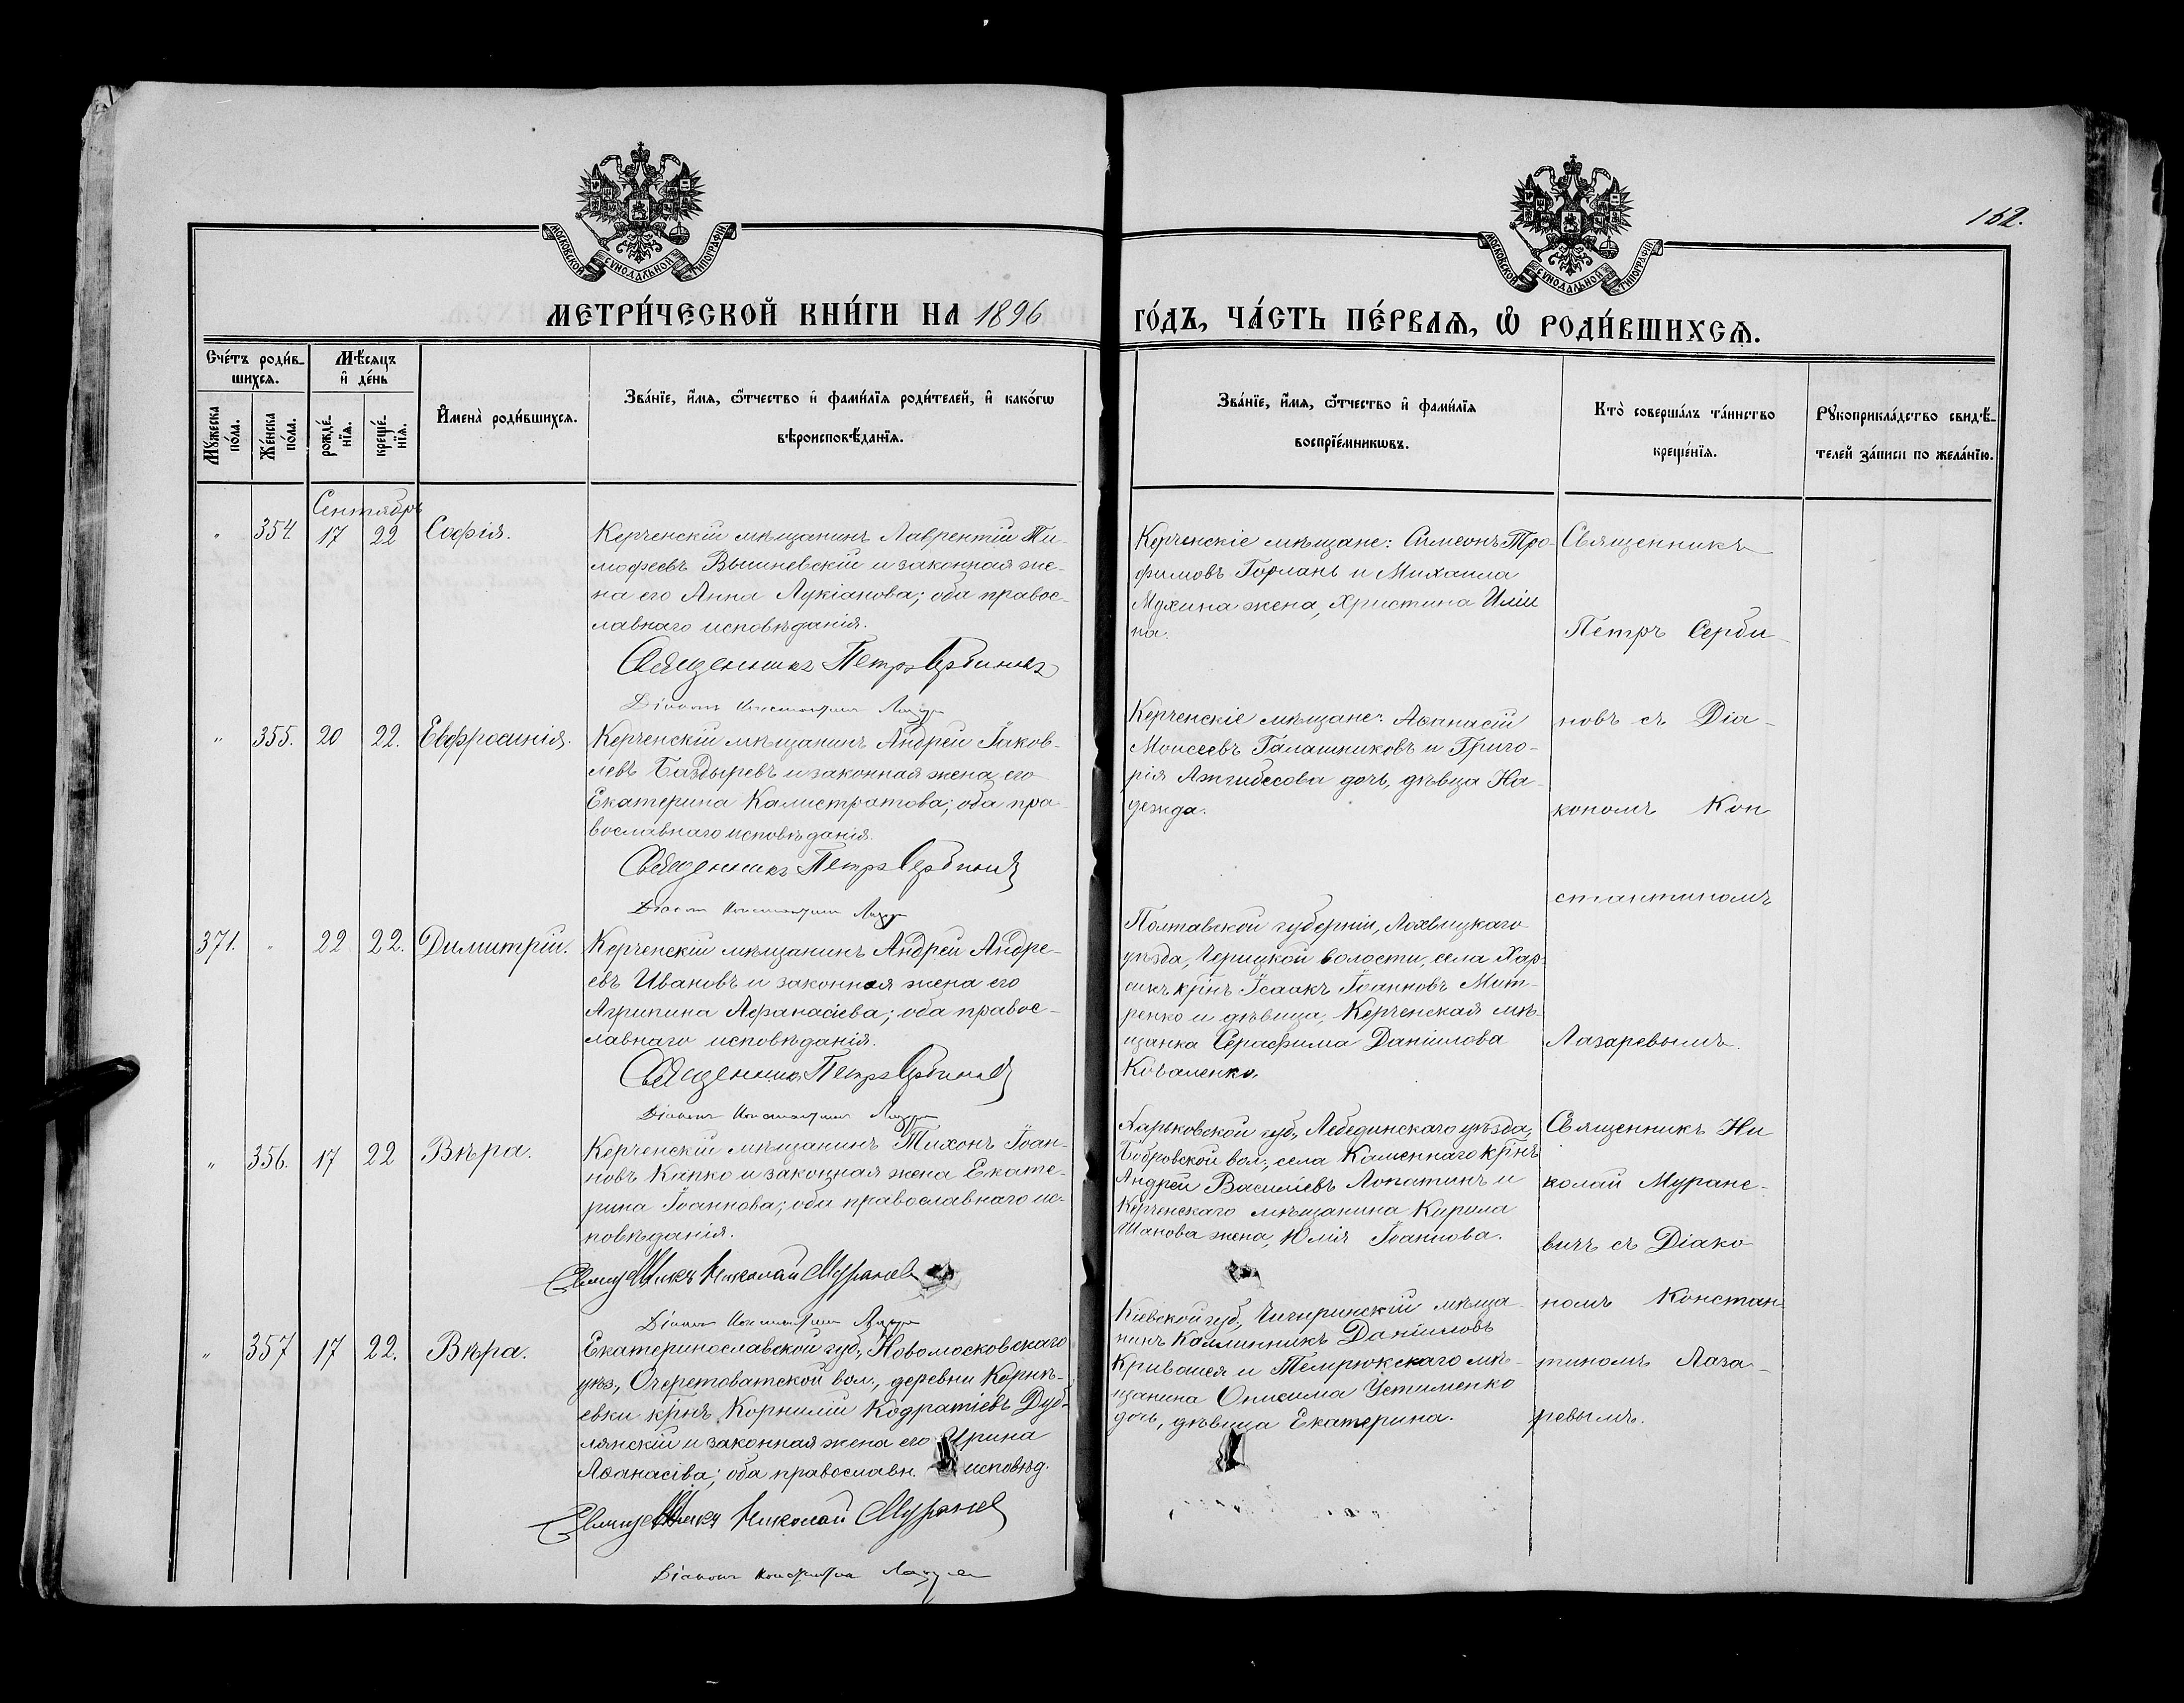 152.
МОСКОВСКОЙ СѴНОДАЛЬНОЙ ТИПОГРАФІИ
МОСКОВСКОЙ СѴНОДАЛЬНОЙ ТИПОГРАФІИ
МЕТРИ́ЧЕСКОЙ КНИ́ГИ НА 1896
ГО́ДЪ, ЧА́СТЬ ПЕ́РВАѦ, Ѽ РОДИ́ВШИХСѦ.
Сче́тъ роди́в-
шихсѧ.
Мꙋ́жеска по́ла.
Же́нска по́ла.
Мѣ́сѧцъ
и҆ де́нь
рожде́-
нїѧ.
креще́-
нїѧ.
И҆мена̀ роди́вшихсѧ.
Зва́нїе, и҆́мѧ, ѻ҆́тчество и҆ фами́лїѧ роди́телей, и҆ како́гѡ
вѣроисповѣ́данїѧ.
Зва́нїе, и҆́мѧ, ѻ҆́тчество и҆ фами́лїѧ
воспрїе́мникѡвъ.
Кто̀ соверша́лъ та́инство
креще́нїѧ.
Рꙋкоприкла́дство свидѣ́-
телей за́писи по жела́нїю.
Сентябрь
" 354 17 22 Софія.
Керченскій мѣщанинъ Лаврентій Ти-
мофеевъ Вышневскій и законная же-
на его Анна Лукіанова; оба правос-
лавнаго исповѣданія.
Священникъ Петръ Сербиновъ
Діаконъ Константинъ Лазарев
Керченскіе мѣщане: Симеонъ Тро-
фимовъ Горлань и Михаила
Мухина жена, Христина Иліи
на.
Священникъ
Петръ Серби-
" 355. 20 22. Евфросинія.
Керченскій мѣщанинъ Андрей Іаков-
левъ Баздыревъ и законная жена его
Екатерина Калистратова; оба пра-
вославнаго исповѣданія.
Священникъ Петръ Сербиновъ
Діаконъ Константинъ Лазарев
Керченскіе мѣщане: Аѳанасій
Моисеевъ Галашниковъ и Григо-
рія дочь, дѣвица На-
дежда.
новъ съ Діа-
кономъ Кон
стантиномъ
371. " 22 22. Димитрій.
Керченскій мѣщанинъ Андрей Андре-
евъ Ивановъ и законная жена его
Агрипина Афанасіева; оба правос-
лавнаго исповѣданія.
Священникъ Петръ Сербиновъ
Діаконъ Константинъ Лазарев
Полтавской губерніи, Лохвицкаго
уѣзда, волости, села Хар-
сикъ крнъ Ісаакъ Іоанновъ Мит-
ренко и дѣвица, Керченская мѣ-
щанка Серафима Даніилова
Коваленко.
Лазаревымъ.
" 356. 17 22 Вѣра.
Керченскій мѣщанинъ Тихонъ Іоан-
новъ Капко и законная жена Екате-
рина Іоаннова; оба православнаго ис-
повѣданія.
Священникъ Николай Муранев
Діаконъ Константинъ Лазарев
Харьковской губ., Лебединскаго уѣзда,
Бобровской вол., села Каменнаго крнъ
Андрей Василіевъ Лопатинъ и
Керченскаго мѣщанина Кирила
Шапова жена, Юлія Іоаннова.
Священникъ Ни
колай Муране-
вичъ съ Діако-
" 357 17 22. Вѣра.
Екатеринославской губ., Новомосковскаго
уѣз., Очеретоватской вол., деревни Корнѣ-
евки крнъ Корнилій Кодратіевъ Дуб-
лянскій и законная жена его Ирина
Аѳанасіва; оба православн. исповѣд.
Священникъ Николай Муранев
Діаконъ Константинъ Лазарев
Кіевской губ., Чигиринскій мѣща-
нинъ Каллиникъ Даніиловъ
Кривошея и Темрюкскаго мѣ-
щанина Онисима Устименко
дочь, дѣвица Екатерина.
номъ Констан-
тиномъ Лаза-
ревымъ.